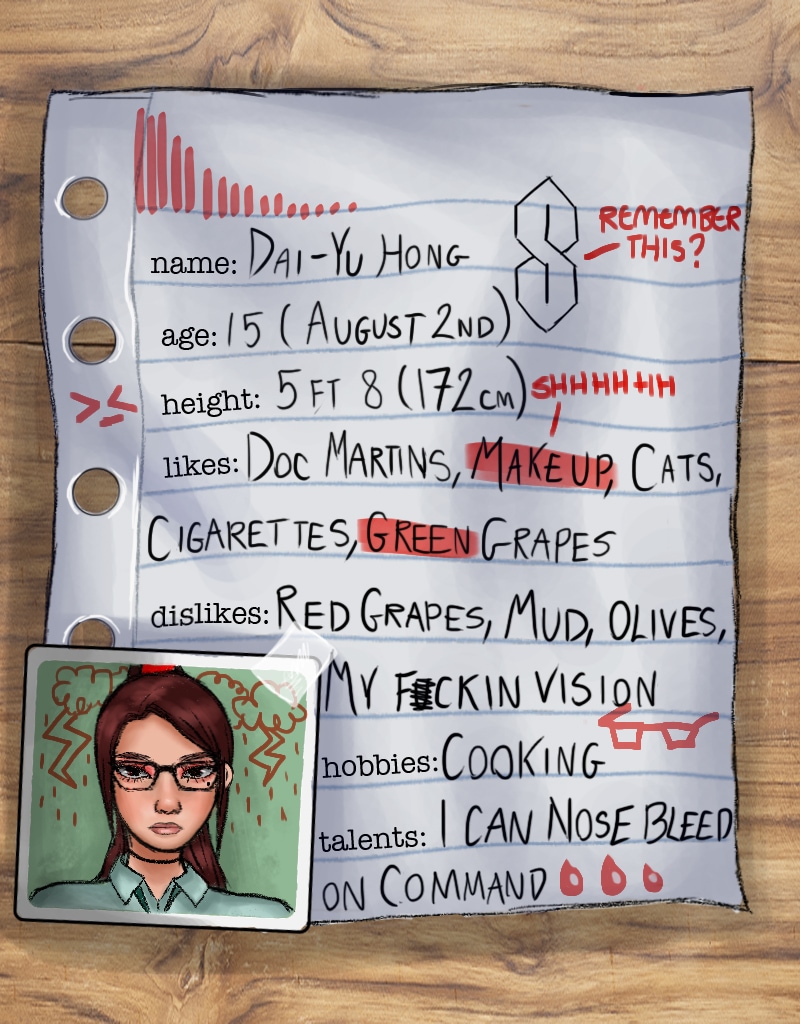 REMEMBER
THIS?
name: DAI-YU HONG
age: 15 (AUGUST 2ND)
height: 5 FT 8 (172 CM)
SHHHHHH
likes: DOC MARTINS, MAKEUP, CATS,
CIGARETTES, GREEN GRAPES
dislikes: RED GRAPES, MUD, OLIVES,
MY F CKIN VISION
hobbies: COOKING
talents: I CAN NOSE BLEED
ON COMMAND